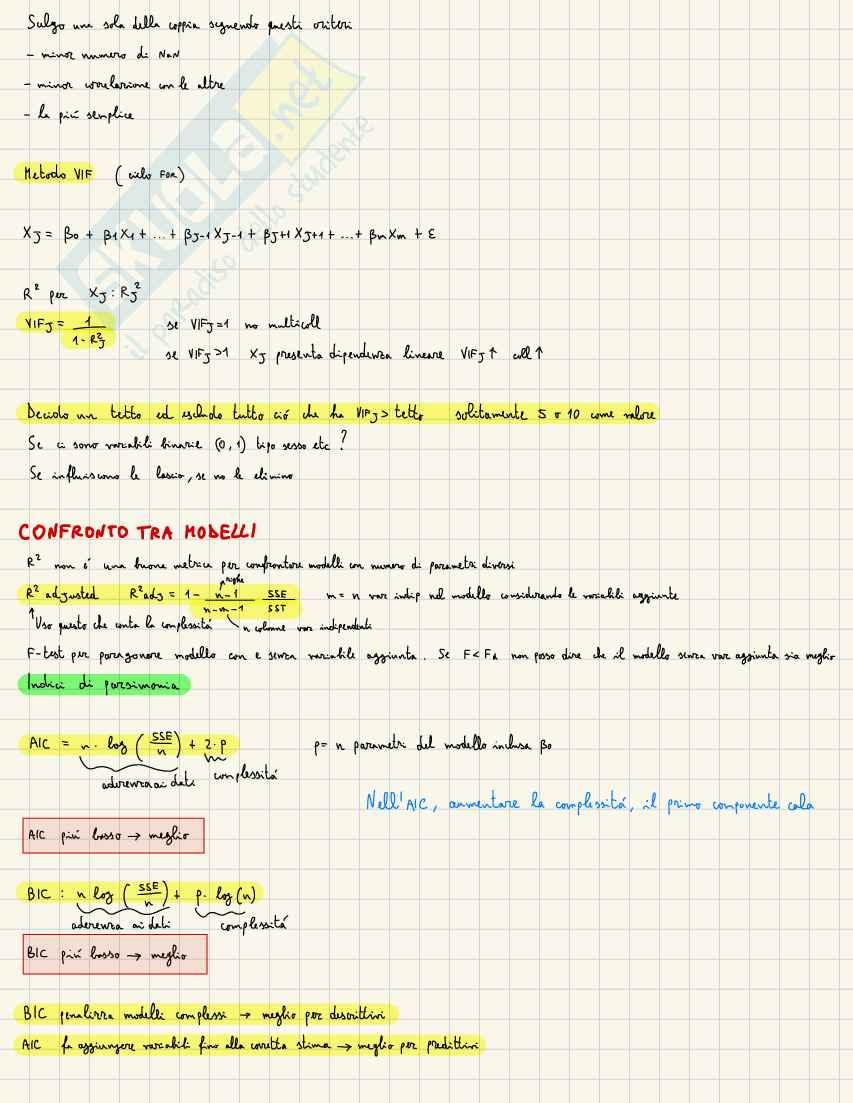 Scelgo una sola della coppia seguendo questi criteri
- minor numero di NaN
- minor correlazione con le altre
- la piú semplice
SKUOLA.net
il paradiso dello studente
Metodo VIF (ciclo FOR)
XJ = β0 + β1X1 + ... + βJ-1XJ-1 + βJ+1XJ+1 + ... + βmXm + ε
R² per XJ : RJ²
VIFJ = 1 / (1 - R²J) se VIFJ=1 no multicoll
se VIFJ>1 XJ presenta dipendenza lineare VIFJ↑ coll↑
Decido un tetto ed escludo tutto ció che ha VIFJ > tetto solitamente 5 o 10 come valore
Se ci sono variabili binarie (0,1) tipo sesso etc ?
Se influiscono le lascio, se no le elimino
CONFRONTO TRA MODELLI
R² non é una buona metrica per confrontare modelli con numero di parametri diversi
righe
R² adjusted R²adj = 1 - (n-1)/(n-m-1) SSE/SST m = n var indip nel modello considerando le variabili aggiunte
↑Uso questo che conta la complessitá n colonne var indipendenti
F-test per paragonare modello con e senza variabile aggiunta. Se F<FA non posso dire che il modello senza var aggiunta sia meglio
Indici di parsimonia
AIC = n · log (SSE/n) + 2·p p= n parametri del modello inclusa β0
aderenza ai dati complessitá
Nell'AIC, aumentare la complessitá, il primo componente cala
AIC piú basso → meglio
BIC : n log (SSE/n) + p · log(n)
aderenza ai dati complessitá
BIC piú basso → meglio
BIC penalizza modelli complessi → meglio per descrittivi
AIC fa aggiungere variabili fino alla corretta stima → meglio per predittivi